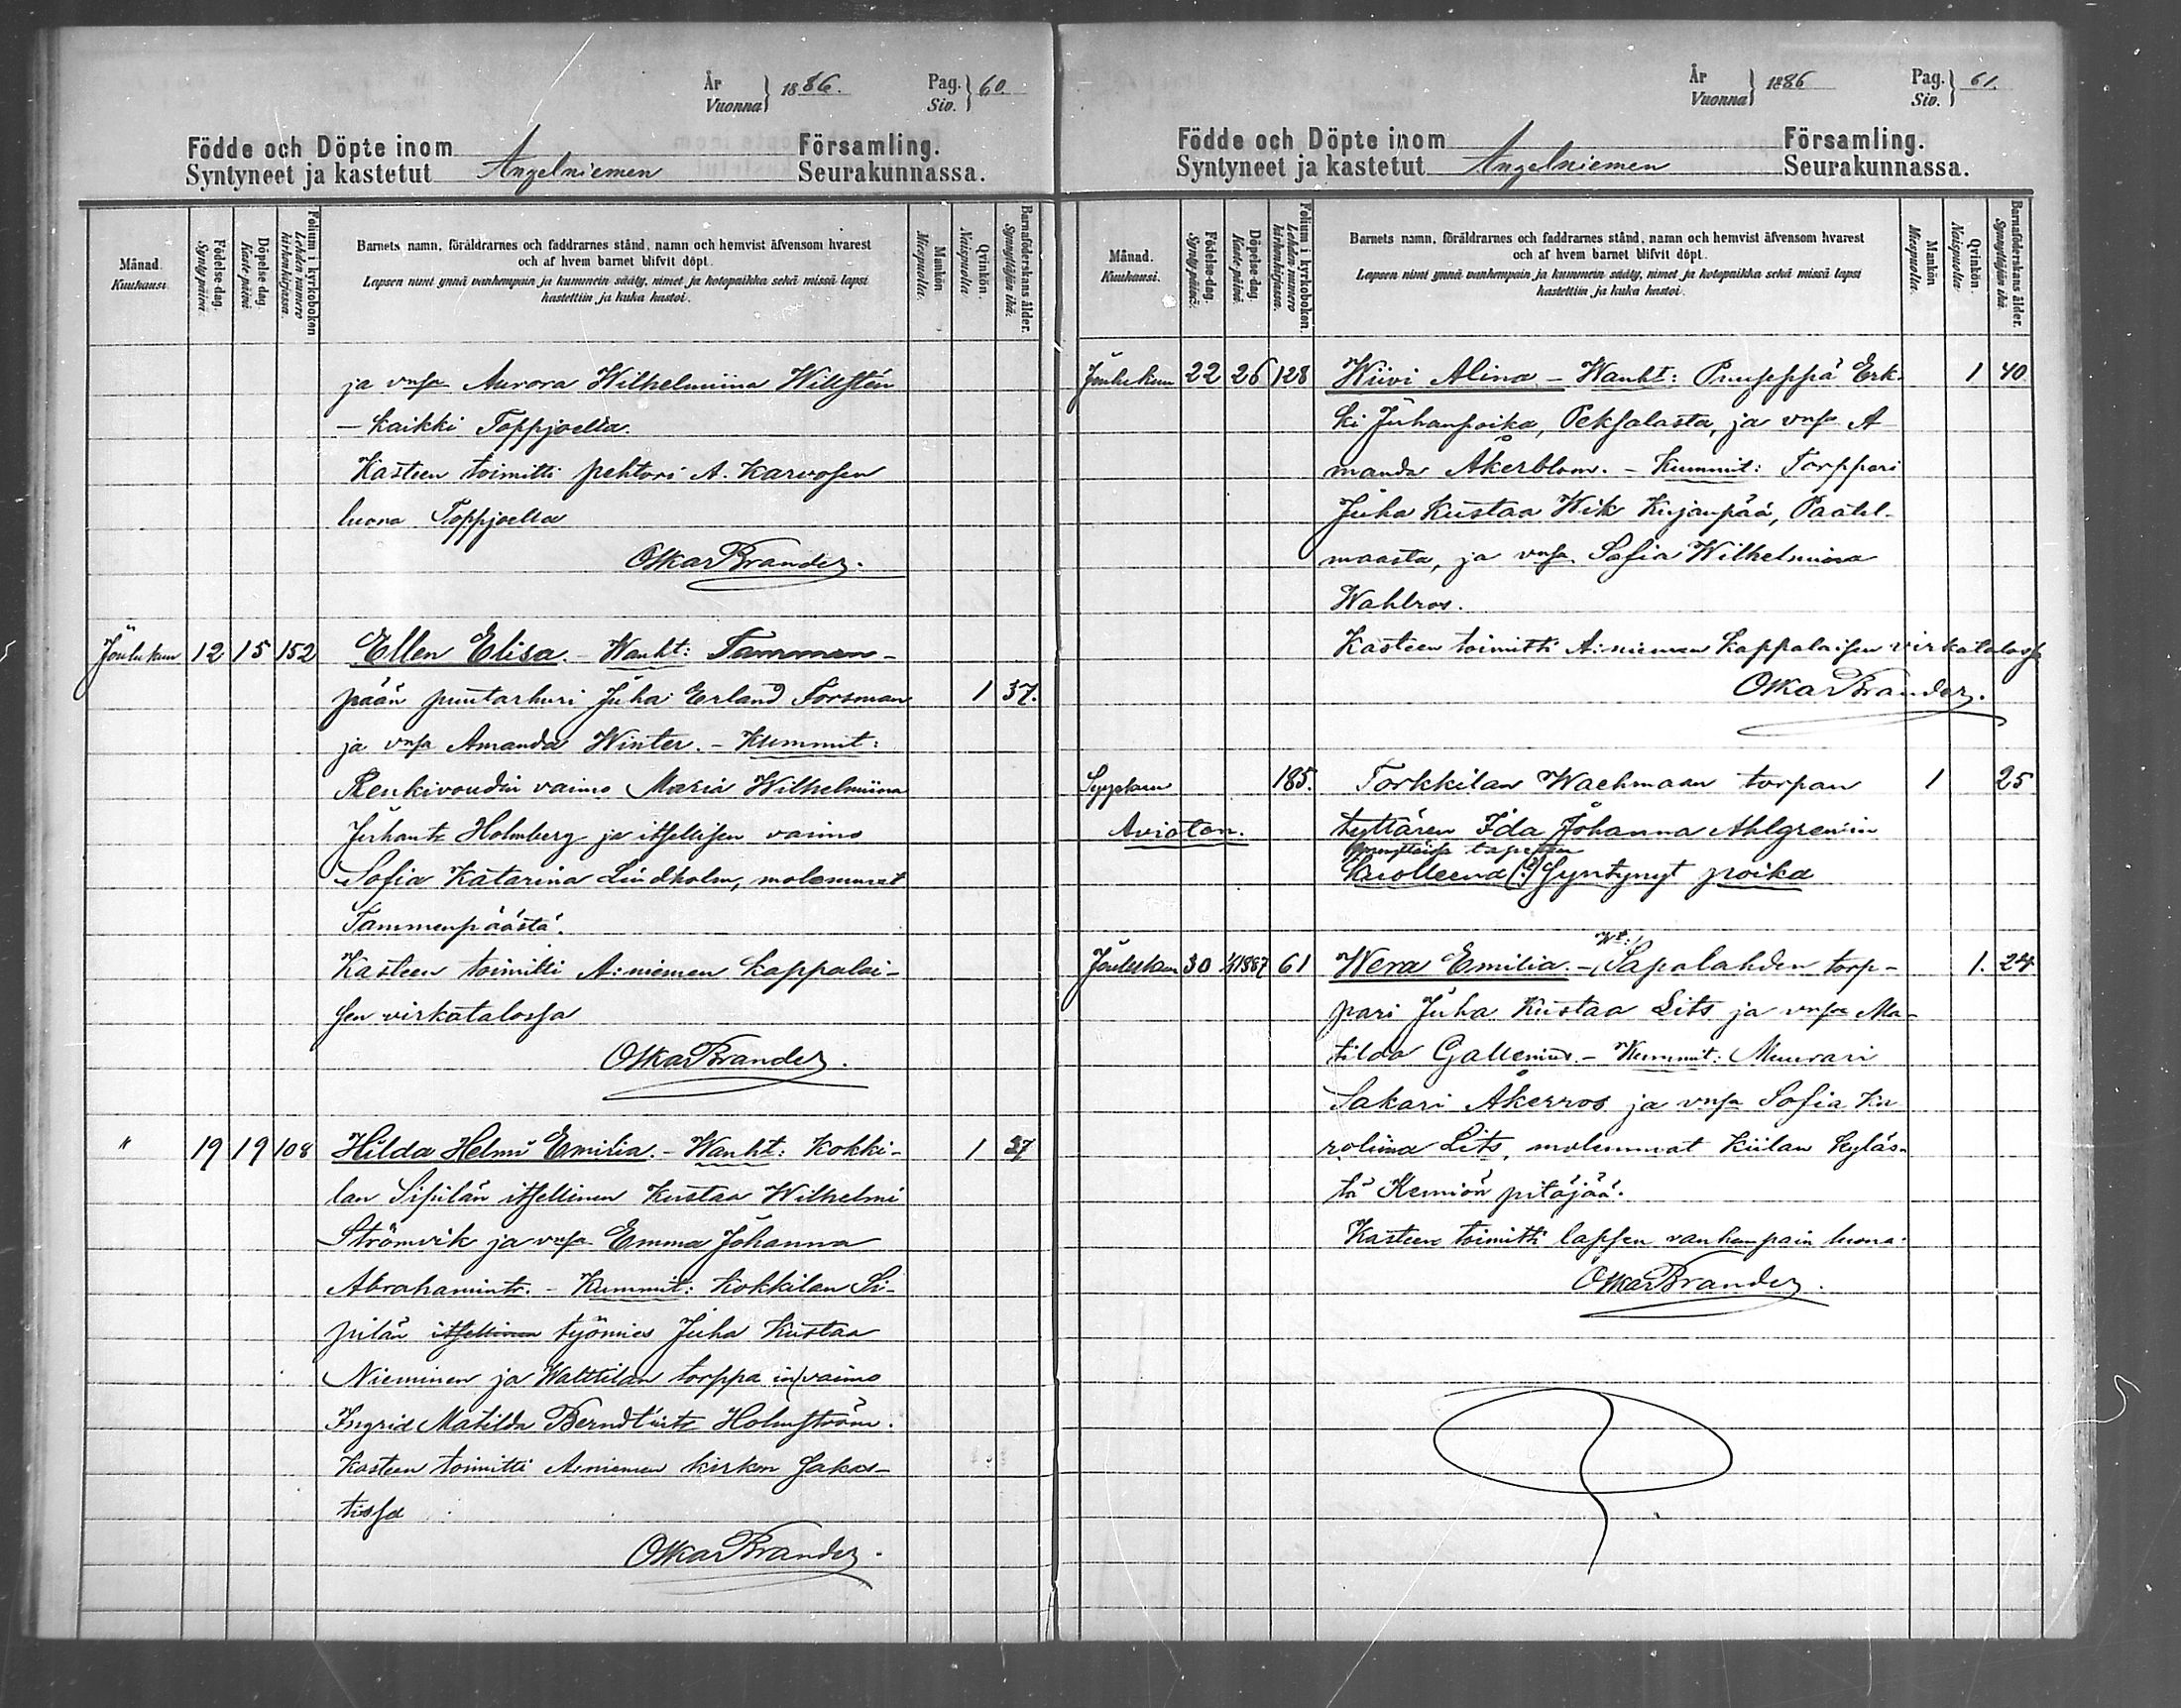 År
Vuonna } 1886.
Pag.
Siv. } 60.
Födde och Döpte inom Församling.
Syntyneet ja kastetut Angelniemen Seurakunnassa.
Månad.
Kuukausi.
Födelse-dag.
Syntypäivä.
Döpelse-dag.
Kastepäivä.
Folium i kyrkoboken
Lehden numero
kirkonkirjassa.
Barnets namn, föräldrarnes och faddrarnes stånd, namn och hemvist äfvensom hvarest
och af hvem barnet blifvit döpt.
Lapsen nimi ynnä vanhempain ja kummein sääty, nimet ja kotopaikka sekä missä lapsi
kastettiin ja kuka kastoi.
Mankön
Miespuolia.
Qvinkön.
Naispuolia
Barnaföderskans ålder.
Synnyttäjän ikä.
ja vnsa Aurora Wilhelmiina Willstén
– kaikki Toppjoelta.
Kasteen toimitti pehtori A. Karvosen
luona Toppjoella
Oskar Brander.
Joulukuu 12 15 152 Ellen Elisa. – Wanht: Tammen-
pään puutarhuri Juha Erland Forsman 1 37.
ja vnsa Amanda Winter. – Kummit:
Renkivoudin vaimo Maria Wilhelmiina
Juhantr Holmberg ja itsellisen vaimo
Sofia Katarina Lindholm, molemmat
Tammenpäästä.
Kasteen toimitti A:niemen kappalai-
sen virkatalossa
Oskar Brander.
" 19 19 108 Hilda Helmi Emilia. – Wanht: Kokki- 1 27
lan Sipilän itsellinen Kustaa Wilhelmi
Strömvik ja vnsa Emma Johanna
Abrahamintr. – Kummit: Kokkilan Si-
pilän itsellinen työmies Juha Kustaa
Nieminen ja Walttilan torppa in) vaimo
Ingrid Matilda Berndtintr Holmström.
Kasteen toimitti A:niemen kirkon sakas-
tissa
Oskar Brander.
År
Vuonna } 1886
Pag.
Siv. } 61.
Födde och Döpte inom Församling.
Syntyneet ja kastetut Angelniemen Seurakunnassa.
Månad.
Kuukausi.
Födelse-dag.
Syntypäivä.
Döpelse-dag.
Kastepäivä.
Folium i kyrkoboken.
Lehden numero
kirkonkirjassa.
Barnets namn, föräldrarnes och faddrarnes stånd, namn och hemvist äfvensom hvarest
och af hvem barnet blifvit döpt.
Lapsen nimi ynnä vanhempain ja kummein sääty, nimet ja kotopaikka sekä missä lapsi
kastettiin ja kuka kastoi.
Mankön
Miespuolia.
Qvinkön.
Naispuolia.
Barnaföderskans ålder.
Synnyttäjän ikä.
Joulukuu 22 26 128 Wiivi Alina – Wanht: Puuseppä Erk- 1 40
ki Juhanpoika, Peksalasta, ja vnsa A
manda Åkerblom. – Kummit: Torppari
Juha Kustaa Wik Kirjanpää, Paatel-
maasta, ja vnsa Sofia Wilhelmiina
Wahlros.
Kasteen toimitti A:niemen kappalaisen virkatalossa
Oskar Brander.
Syyskuu 185. Torkkilan Wachmaan torpan 1 25
Avioton. tyttären Ida Johanna Ahlgren'in
Kuolleena (?) syntynyt poika
Wt:
Joulukuu 30 1/1 1887 61 Wera Emilia. – Sapalahden torp- 1. 24
pari Juha Kustaa Lits ja vnsa Ma-
tilda Gallenius. – Kummit: Muurari
Sakari Åkerros ja vnsa Sofia Ka
roliina Lits, molemmat Kiilan kyläs-
tä Kemiön pitäjää.
Kasteen toimitti lapsen vanhempain luona.
Oskar Brander.